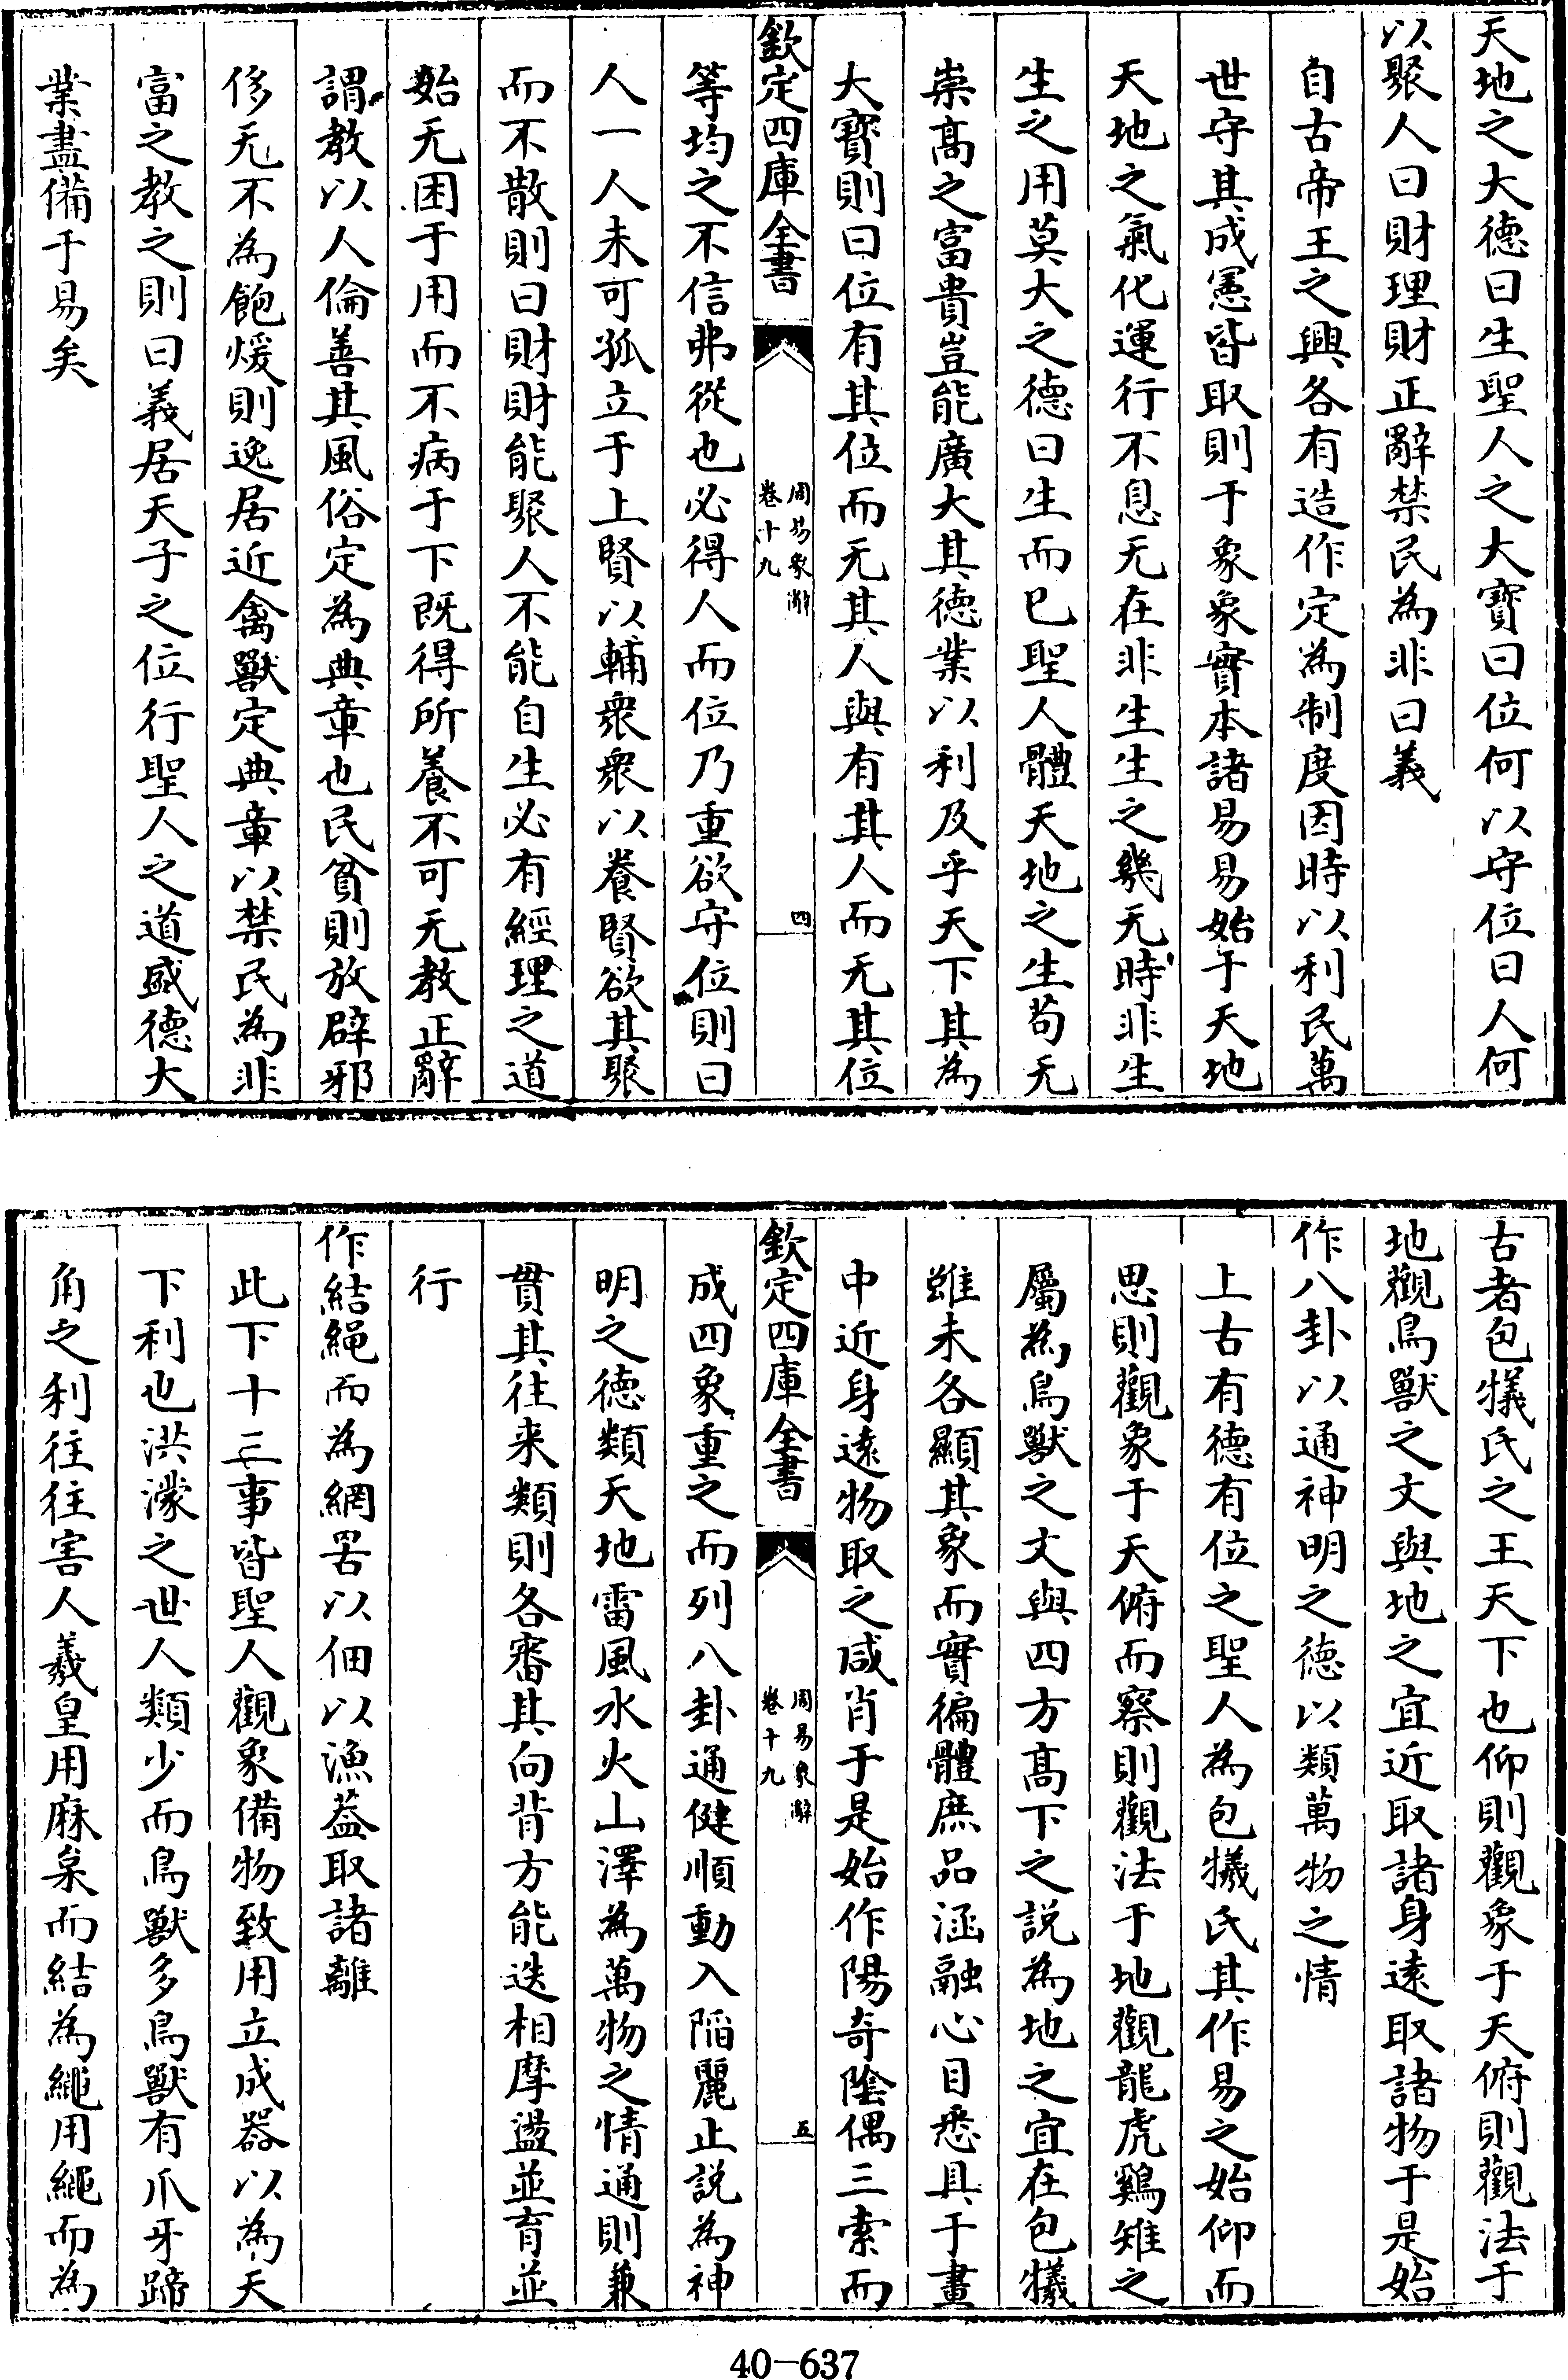 天地之大德曰生聖人之大寶曰位何以守位曰人何
以聚人曰財理財正辭禁民為非曰義
自古帝王之興各有造作定為制度因時以利民萬
世守其成憲皆取則于象象實本諸易易始于天地
天地之氣化運行不息无在非生生之幾无時非生
生之用莫大之德曰生而已聖人體天地之生苟无
崇髙之富貴豈能廣大其德業以利及乎天下其為
大寶則曰位有其位而无其人與有其人而无其位
欽定四庫全書
周易象辭
卷十九
四
等均之不信弗從也必得人而位乃重欲守位則曰
人一人未可孤立于上賢以輔衆衆以養賢欲其聚
而不散則曰財財能聚人不能自生必有經理之道
始无困于用而不病于下既得所養不可无教正辭
謂教以人倫善其風俗定為典章也民貧則放辟邪
侈无不為飽煖則逸居近禽獸定典章以禁民為非
富之教之則曰義居天子之位行聖人之道盛德大
業盡備于易矣
古者包犧氏之王天下也仰則觀象于天俯則觀法于
地觀鳥獸之文與地之宜近取諸身逺取諸物于是始
作八卦以通神明之德以類萬物之情
上古有德有位之聖人為包犧氏其作易之始仰而
思則觀象于天俯而察則觀法于地觀龍虎鷄雉之
屬為鳥獸之文與四方髙下之説為地之宜在包犧
雖未各顯其象而實徧體庶品涵融心目悉具于畫
中近身逺物取之咸肖于是始作陽奇陰偶三索而
欽定四庫全書
周易象辭
卷十九
五
成四象重之而列八卦通健順動入陷麗止説為神
明之德類天地雷風水火山澤為萬物之情通則兼
貫其往来類則各審其向背方能迭相摩盪並育並
行
作結繩而為網罟以佃以漁葢取諸離
此下十三事皆聖人觀象備物致用立成器以為天
下利也洪濛之世人類少而鳥獸多鳥獸有爪牙蹄
角之利往往害人羲皇用麻枲而結為繩用繩而為
40-637